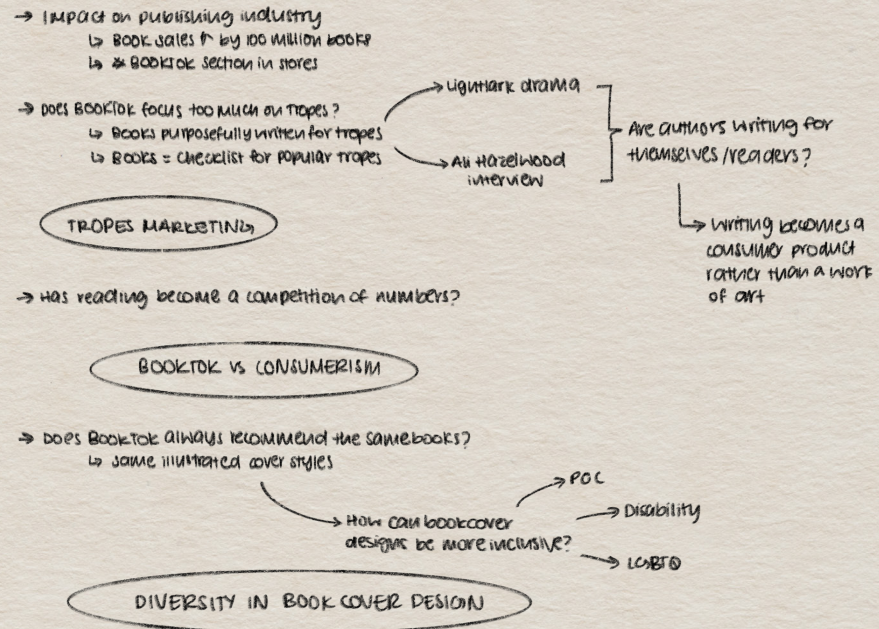 → Impact on publishing industry
↳ Book sales ↑ by 100 million books
↳ * BookTok section in stores
→ Does BookTok focus too much on tropes?
↳ Books purposefully written for tropes
↳ Books = checklist for popular tropes
→ Lightlark drama
→ Ali Hazelwood
interview
Are authors writing for
themselves/readers?
↳ Writing becomes a
consumer product
rather than a work
of art
TROPES MARKETING
→ Has reading become a competition of numbers?
BOOKTOK VS CONSUMERISM
→ Does BookTok always recommend the same books?
↳ same illustrated cover styles
→ How can bookcover
designs be more inclusive?
→ POC
→ Disability
→ LGBTQ
DIVERSITY IN BOOK COVER DESIGN